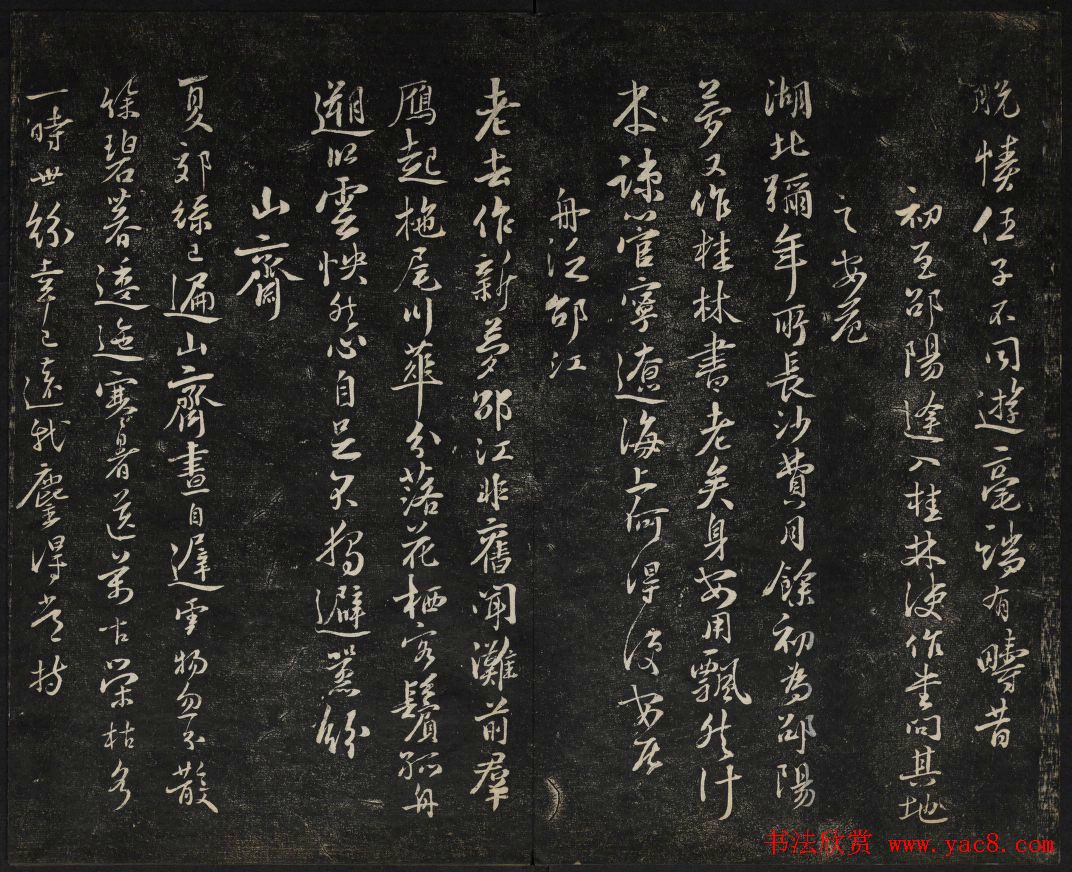 脫幘伍子不同遊毫端有疇昔
初至邵陽逢入桂林使作書問其地
之安危
湖北彌年所長沙費月餘初為邵陽
夢又作桂林書老矣身安用飄然計
本疎管寧遼海上何得復安居
舟泛邵江
老去作新夢邵江非舊聞灘前羣
鴈起柂尾川華分落花栖客鬢孤舟
遡歸雲快然心自足不獨避囂紛
山齋
夏郊綠已遍山齋晝自遲雲物忽分散
餘碧暮逶迤寒暑送萬古榮枯各
一時世紛幸已遠我麈得常持
书法欣赏 www.yac8.com